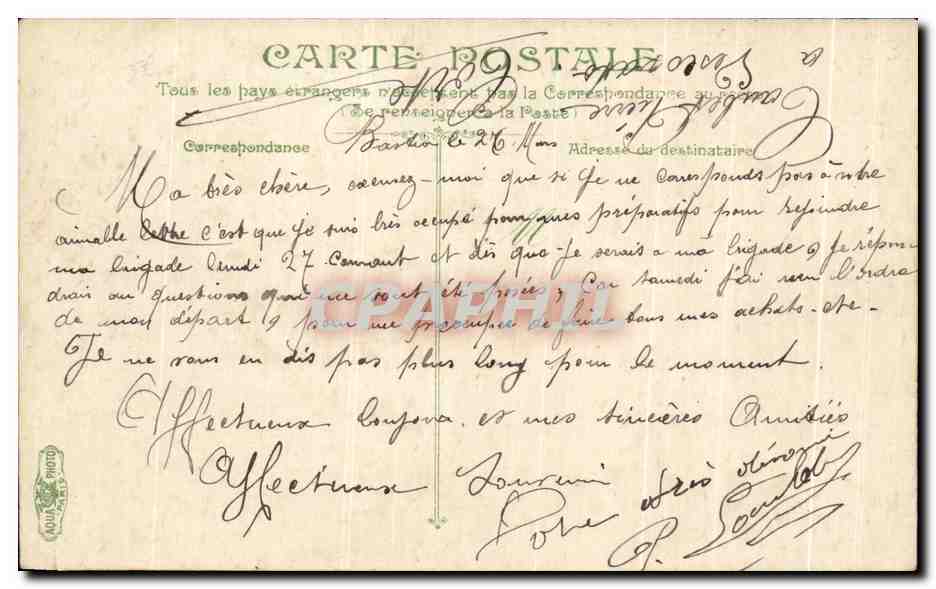 CARTE POSTALE
Tous les pays étrangers n'acceptent pas la Correspondance au
(Se renseigner à la Poste)
Correspondance
Adresse du destinataire
Bastia le 26 Mars
Ma très chère, excusez-moi que si je ne corresponds pas à votre
aimable lettre c'est que je suis très occupé préparatifs pour rejoindre
ma brigade lundi 27 courant et dès que je serais a ma brigade je répon
drais au questions qui me sont été posées, Car samedi j'ai reçu l'ordre
de mon départ pour me de faire tous mes achats. etc-
Je ne vous en dis pas plus long pour le moment.
Affectueux et mes sincères Amitiés
Affectueux Souvenir
Votre très dévoué
CPAPHIL
AQUA PHOTO
PARIS